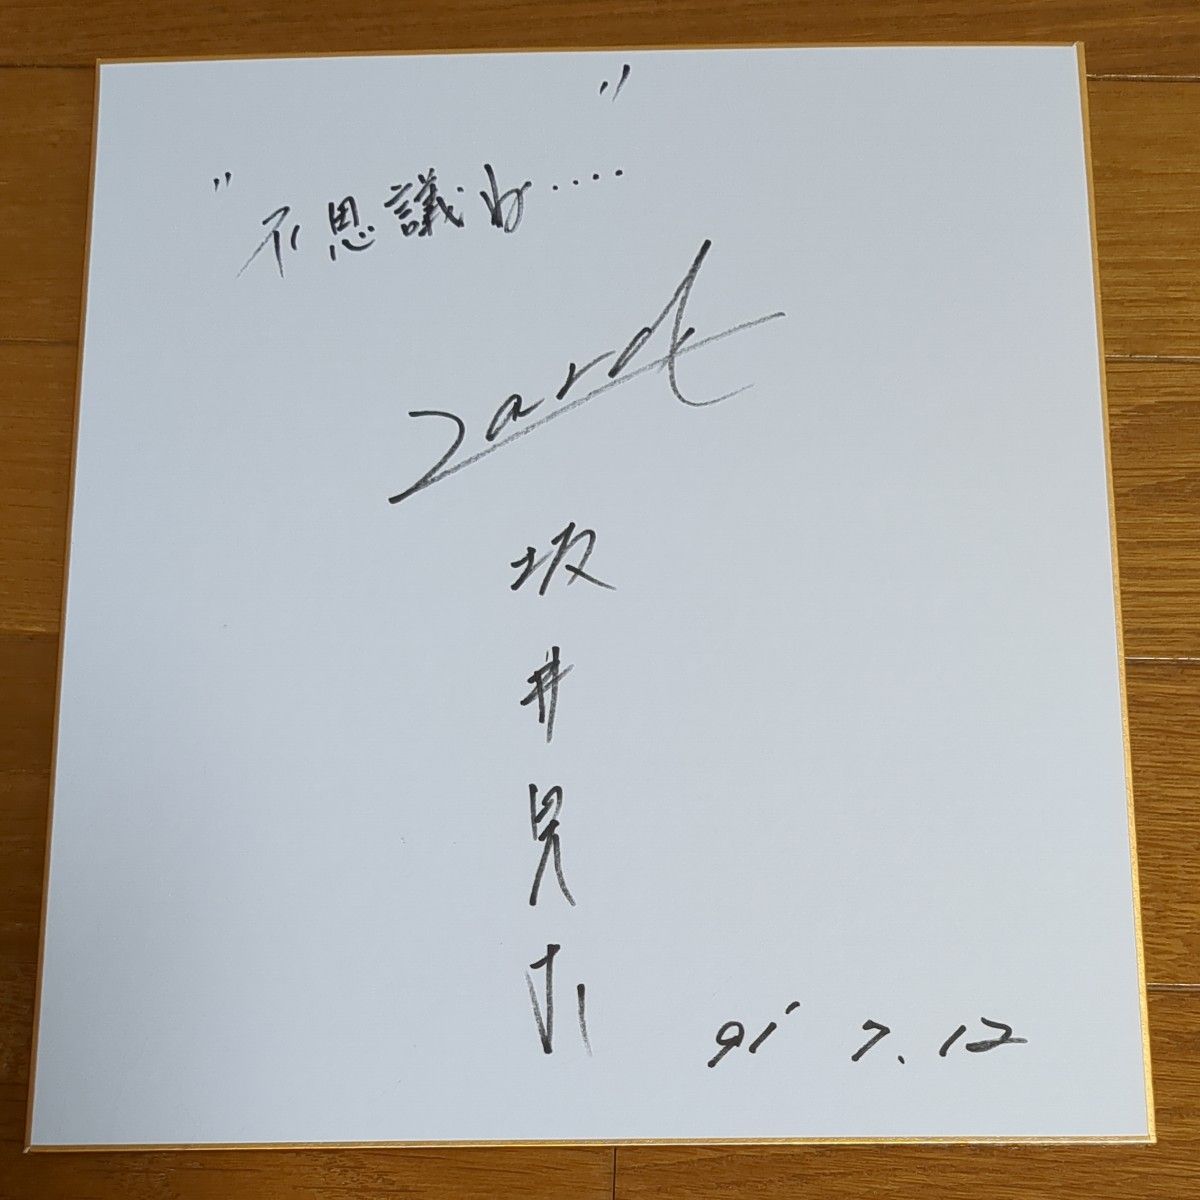 "不思議ね・・・・"
Zard
坂井泉水
91' 7.12